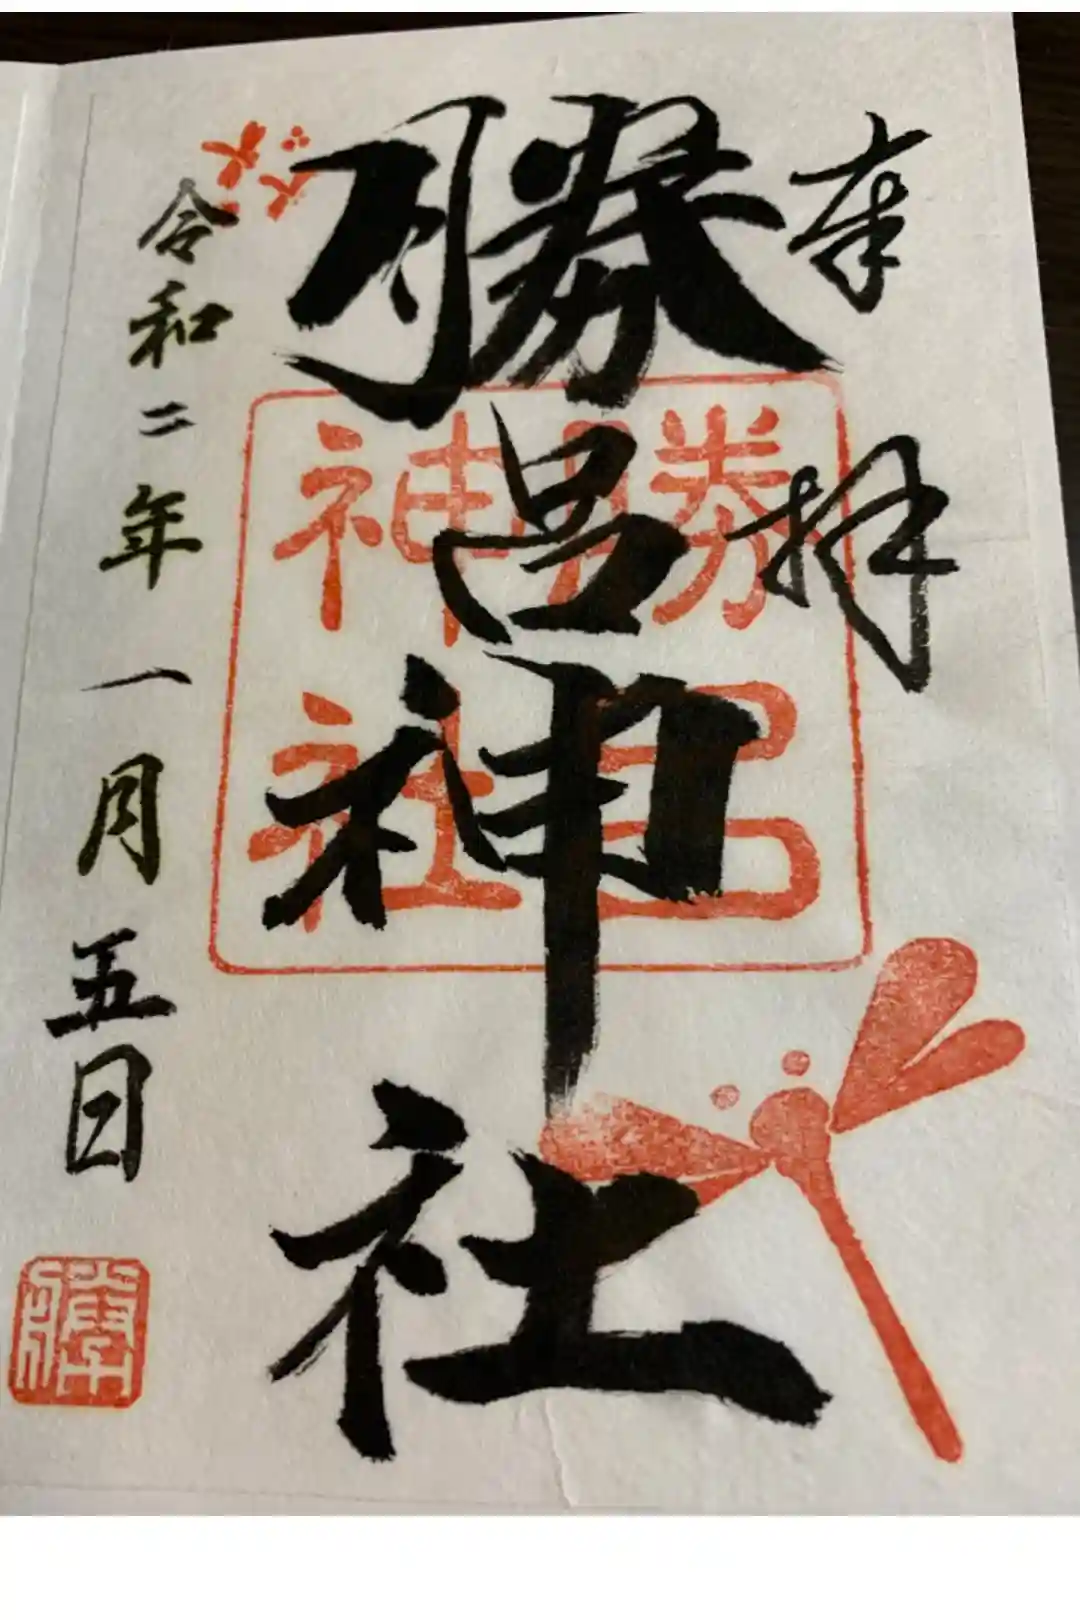 奉拝
勝呂神社
勝呂
神社
令和二年一月五日